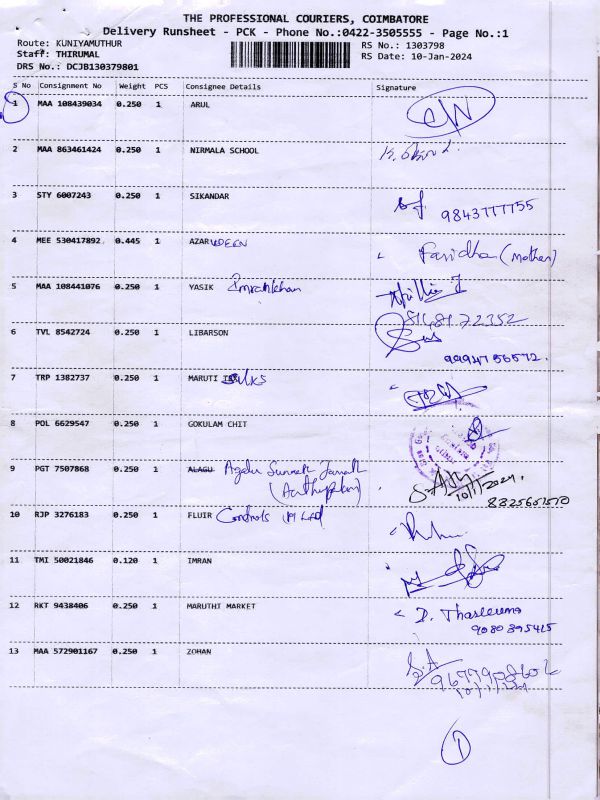 THE PROFESSIONAL COURIERS, COIMBATORE
Delivery Runsheet - PCK - Phone No.:0422-3505555 - Page No.:1
Route: KUNIYAMUTHUR RS No.: 1303798
Staff: THIRUMAL RS Date: 10-Jan-2024
DRS No.: DCJB130379801
S No Consignment No Weight PCS Consignee Details Signature
1 MAA 108439034 0.250 1 ARUL
2 MAA 863461424 0.250 1 NIRMALA SCHOOL
3 STY 6007243 0.250 1 SIKANDAR 9843777755
4 MEE 530417892 0.445 1 AZARUDEEN Faridha (mother)
5 MAA 108441076 0.250 1 YASIK Imrahkhan
6 TVL 8542724 0.250 1 LIBARSON
7 TRP 1382737 0.250 1 MARUTI
8 POL 6629547 0.250 1 GOKULAM CHIT
9 PGT 7507868 0.250 1 ALAGU
10/1/2024
10 RJP 3276183 0.250 1 FLUIR Controls
11 TMI 50021846 0.120 1 IMRAN
12 RKT 9438406 0.250 1 MARUTHI MARKET D. Thasleema
9080395415
13 MAA 572901167 0.250 1 ZOHAN
1